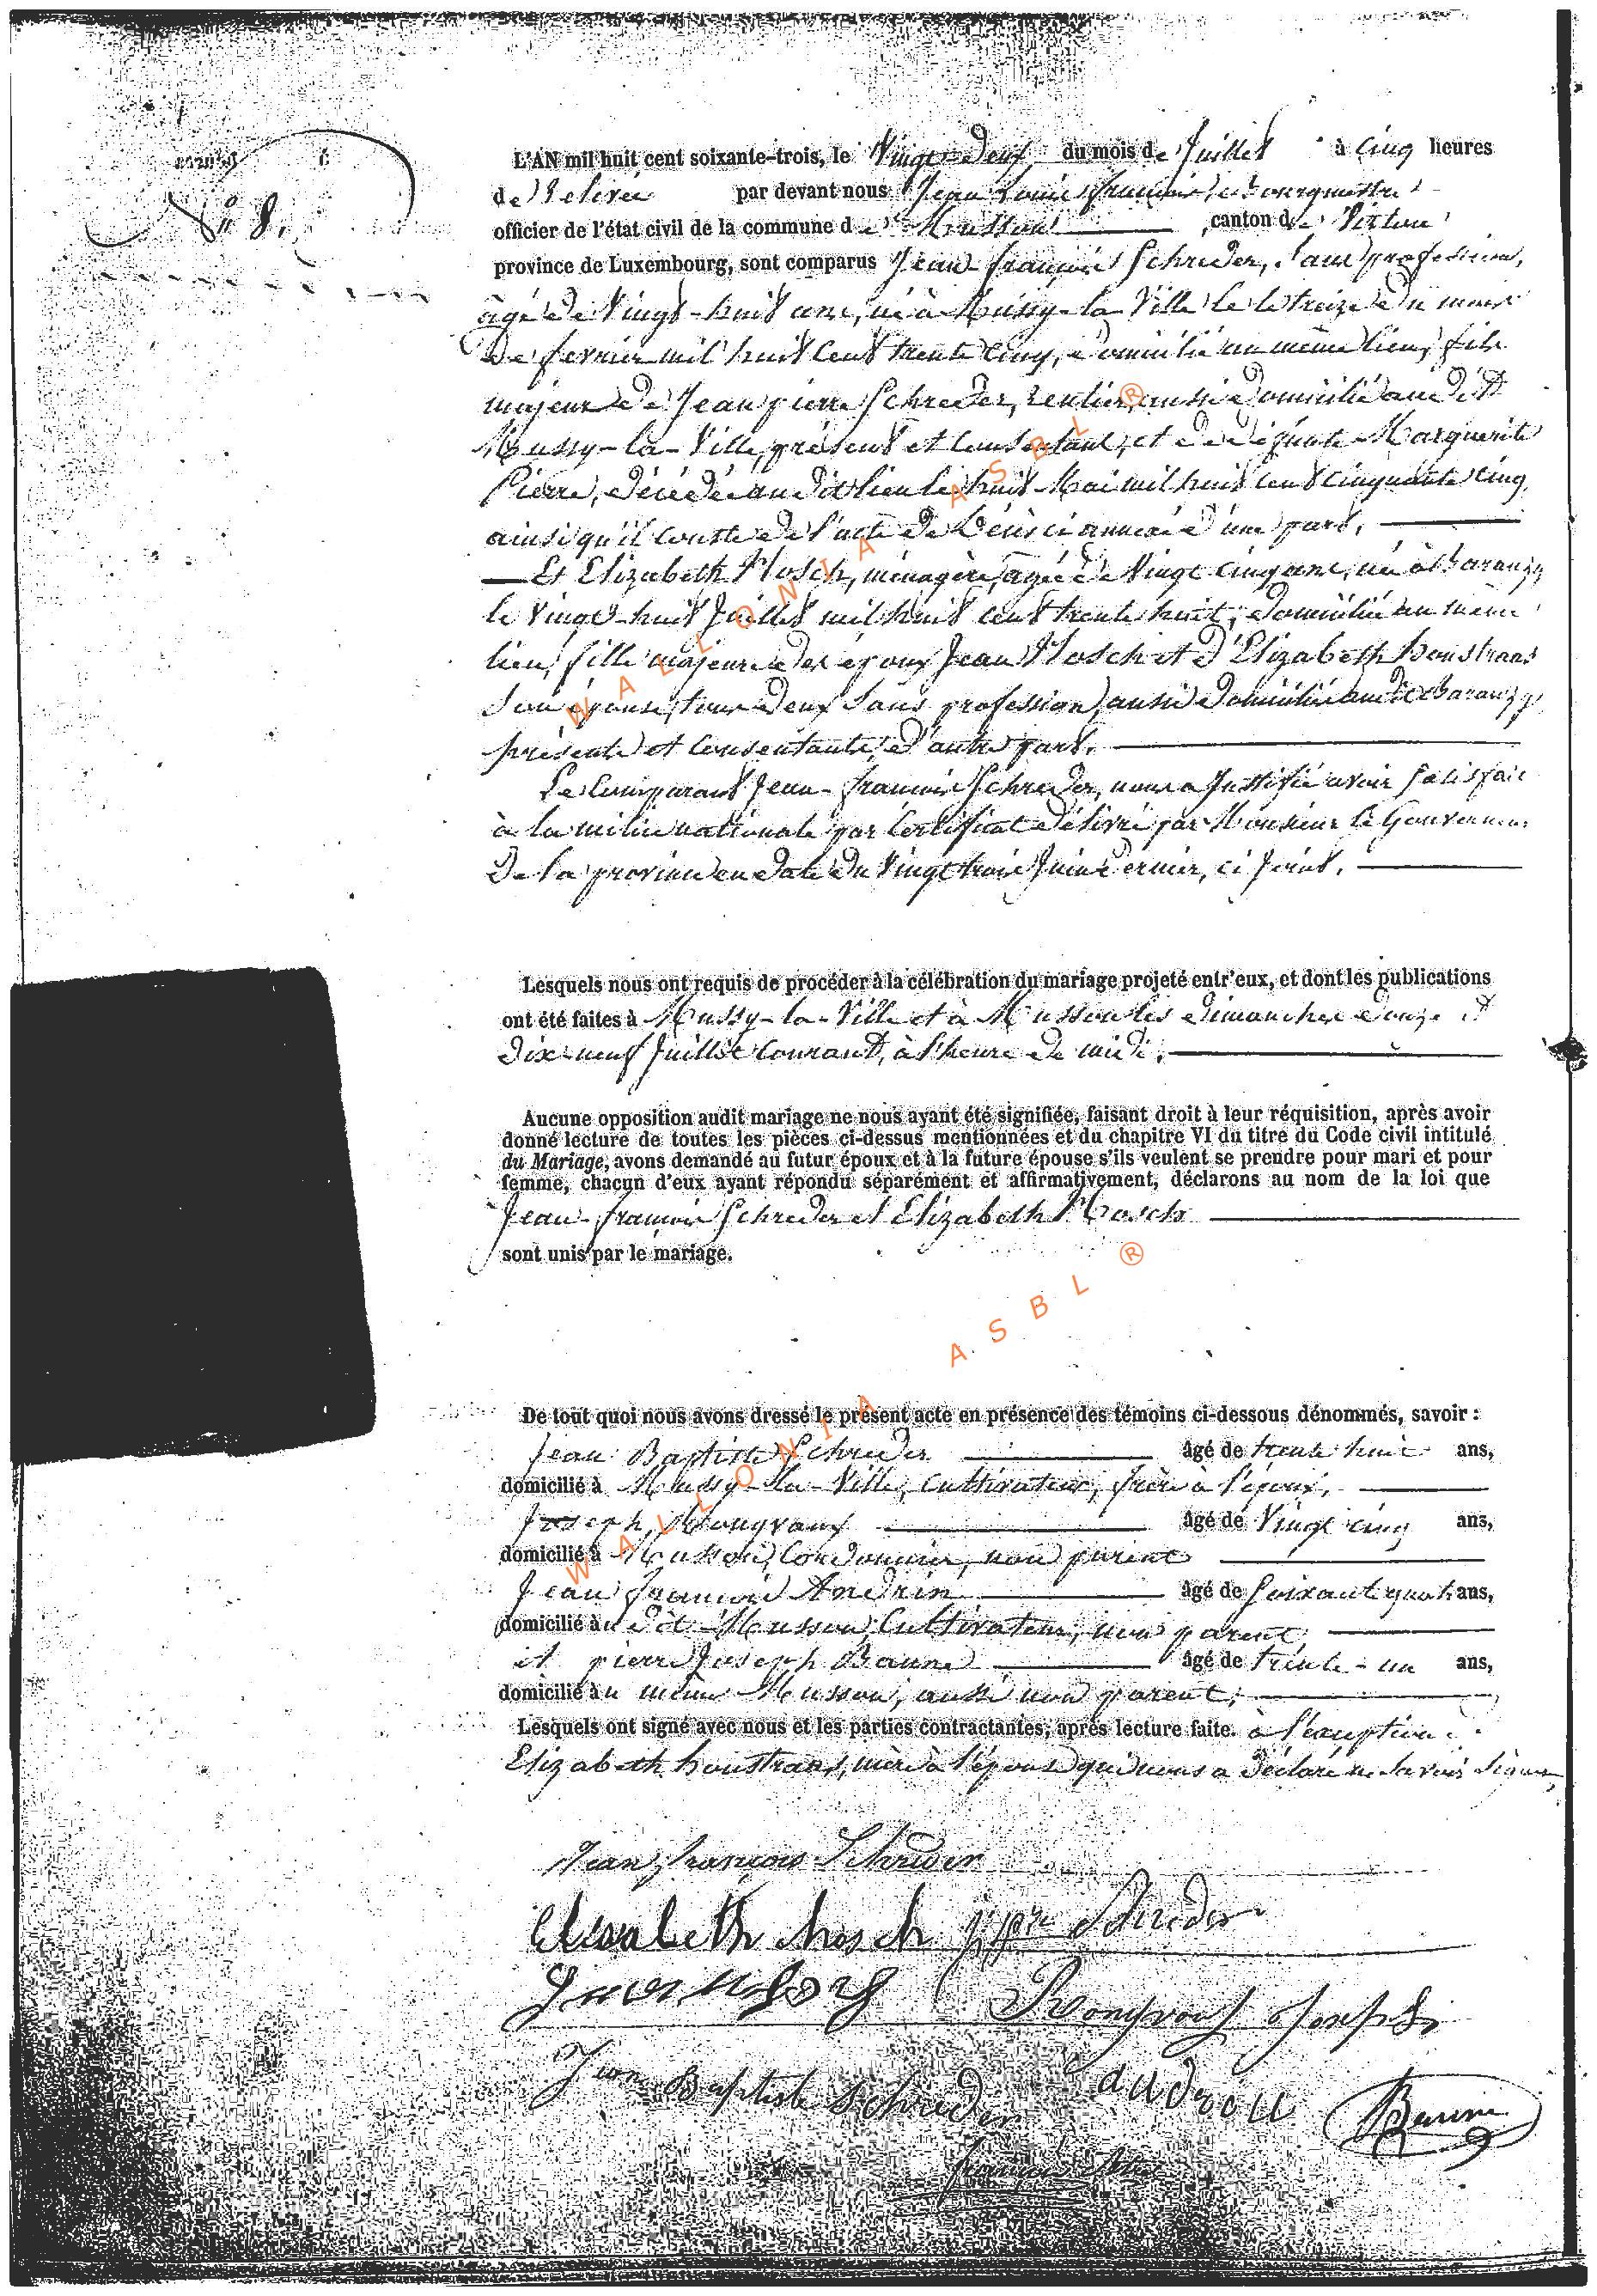 N° 8.
L'AN mil huit cent soixante-trois, le Vingt-Neuf du mois de Juillet à Cinq heures
de Relevée par devant nous Jean Louis François Bourgmestre
officier de l'état civil de la commune de Musson canton de Virton
province de Luxembourg, sont comparus Jean-françois Schreder, Sans profession,
âgé de Vingt-huit ans, né à Mussy-la Ville le treize du mois
de fevrier mil huit Cent trente Cinq, domicilié au même lieu, fils
majeur de Jean pierre Schreder, rentier, aussi domicilié audit
Mussy-la-Ville, présent et Consentant, et de défunte Marguerite
Pierre, décédée au dit lieu le huit Mai mil huit Cent Cinquante Cinq,
ainsi qu'il Conste de l'acte de Décès ci annexé d'une part,
Et Elizabeth Mosch, ménagère, agée de Vingt Cinq ans, née à Baranzy
le Vingt-huit Juillet mil huit Cent trente huit, domiciliée au même
lieu, fille majeure des époux Jean Mosch et d'Elizabeth houstrans
Son épouse, tous deux Sans profession, aussi domiciliés audit Baranzy,
présente et Consentante, d'autre part.
Le Comparant Jean-françois Schreder, nous a Justifié avoir Satisfait
à la milice nationale par Certificat délivré par Monsieur le Gouverneur
De la province en date du Vingt trois Juin dernier, ci Joint.
Lesquels nous ont requis de procéder à la célébration du mariage projeté entr'eux, et dont les publications
ont été faites à Mussy-la-Ville et à Musson les dimanches douze et
Dix-neuf Juillet Courant, à l'heure de midi,
Aucune opposition audit mariage ne nous ayant été signifiée, faisant droit à leur réquisition, après avoir
donné lecture de toutes les pièces ci-dessus mentionnées et du chapitre VI du titre du Code civil intitulé
du Mariage, avons demandé au futur époux et à la future épouse s'ils veulent se prendre pour mari et pour
femme, chacun d'eux ayant répondu séparément et affirmativement, déclarons au nom de la loi que
Jean-françois Schreder et Elizabeth Mosch
sont unis par le mariage.
De tout quoi nous avons dressé le présent acte en présence des témoins ci-dessous dénommés, savoir :
Jean Baptiste Schreder âgé de trente huit ans,
domicilié à Mussy-la-Ville, Cultivateur, frère à l'époux,
Joseph Rongvaux âgé de Vingt cinq ans,
domicilié à Musson, Cordonnier, non parent
Jean françois Andrin âgé de Soixante quatre ans,
domicilié à u dit Musson, Cultivateur, non parent
et pierre Joseph Baune âgé de trente-un ans,
domicilié à u même Musson, aussi non parent,
Lesquels ont signé avec nous et les parties contractantes, après lecture faite. à l'exception d'
Elizabeth houstrans, mère à l'épouse qui nous a déclaré ne Savoir Signer,
Jean françois Schreder
Elisabeth Mosch jppre Schreder
Rongvaux Joseph
Jean Baptiste Schreder Baune
WALLONIA ASBL ®
WALLONIA ASBL ®